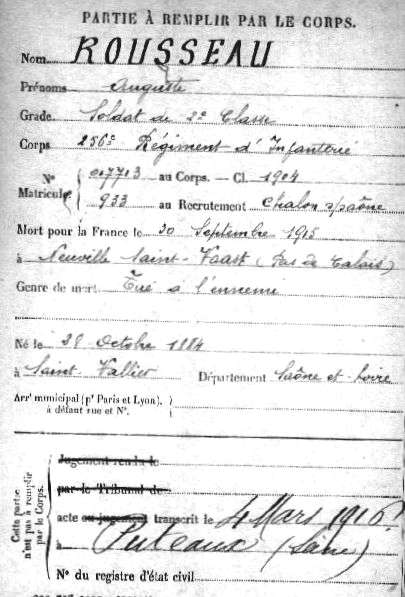 PARTIE À REMPLIR PAR LE CORPS.
Nom ROUSSEAU
Prénoms Auguste
Grade Soldat de 2e Classe
Corps 256e Régiment d'Infanterie
N° 07713 au Corps. — Cl. 1904
Matricule 933 au Recrutement Chalon s/saône
Mort pour la France le 30 Septembre 1915
à Neuville Saint-Vaast (Pas de Calais)
Genre de mort Tué à l'ennemi
Né le 28 Octobre 1884
à Saint Vallier Département Saône et-Loire
Arrt municipal (pr Paris et Lyon),
à défaut rue et N°.
Cette partie
n'est pas à remplir
par le Corps.
Jugement rendu le
par le Tribunal de
acte ou jugement transcrit le 4 Mars 1916
à Puteaux (Seine)
N° du registre d'état civil